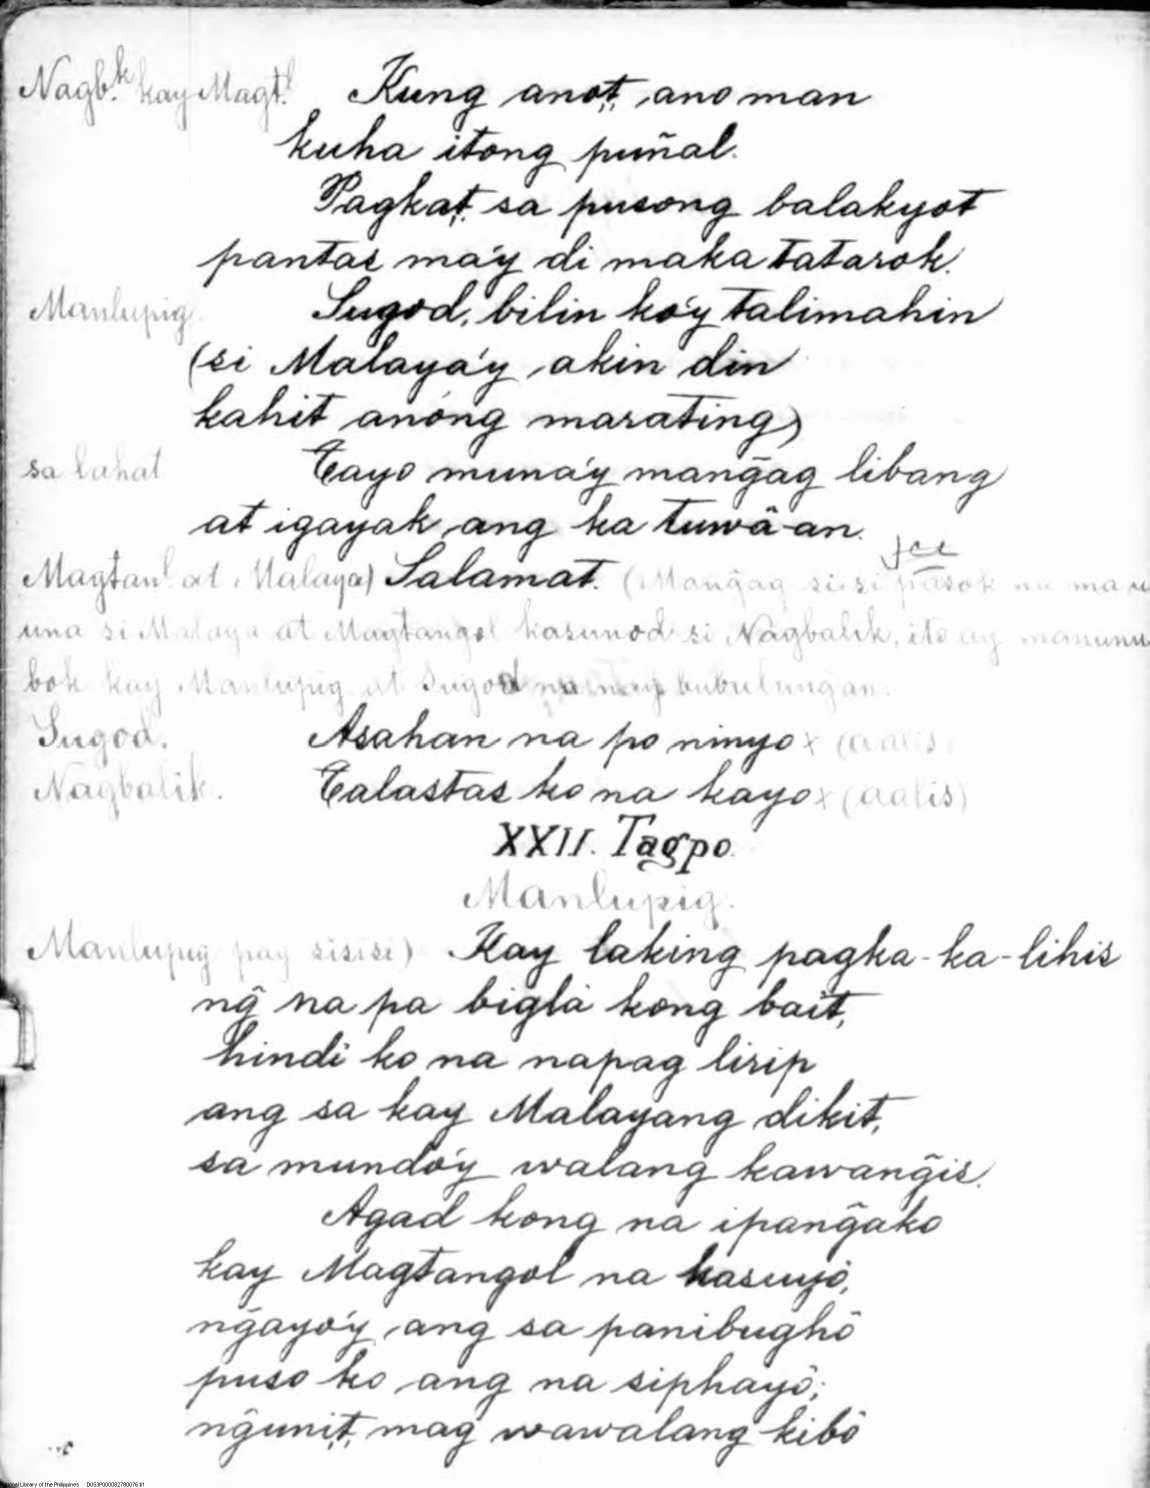 Nagb.k kay Magt.l Kung anot, ano man
kuha itong puñal.
Pagkat, sa pusong balakyot
pantas ma'y di maka tatarok.
Manlupig. Sugod, bilin ko'y talimahin
(si Malaya'y akin din
kahit anóng marating)
sa lahat Tayo muna'y mang̃ag libang
at igayak ang ka tuwâ-an.
Magtanl at Malaya) Salamat. (Mang̃ag sisi pasok na ma
una si Malaya at Magtangol kasunod si Nagbalik, ito ay manunu
bok kay Manlupig at Sugod na may bubulung̃an.
Sugod. Asahan na po ninyo x (aalis)
Nagbalik. Talastas ko na kayo x (aalis)
XXII. Tagpo.
Manlupig.
Manlupig pag sisisi) Kay laking pagka-ka-lihis
ng̃ na pa biglá kong bait,
hindi ko na napag lirip
ang sa kay Malayang dikit,
sa mundo'y walang kawang̃is.
Agad kong na ipang̃ako
kay Magtangol na kasuyò,
ng̃ayo'y ang sa panibughô
puso ko ang na siphayô;
ng̃unit, mag wawalang kibô
National Library of the Philippines